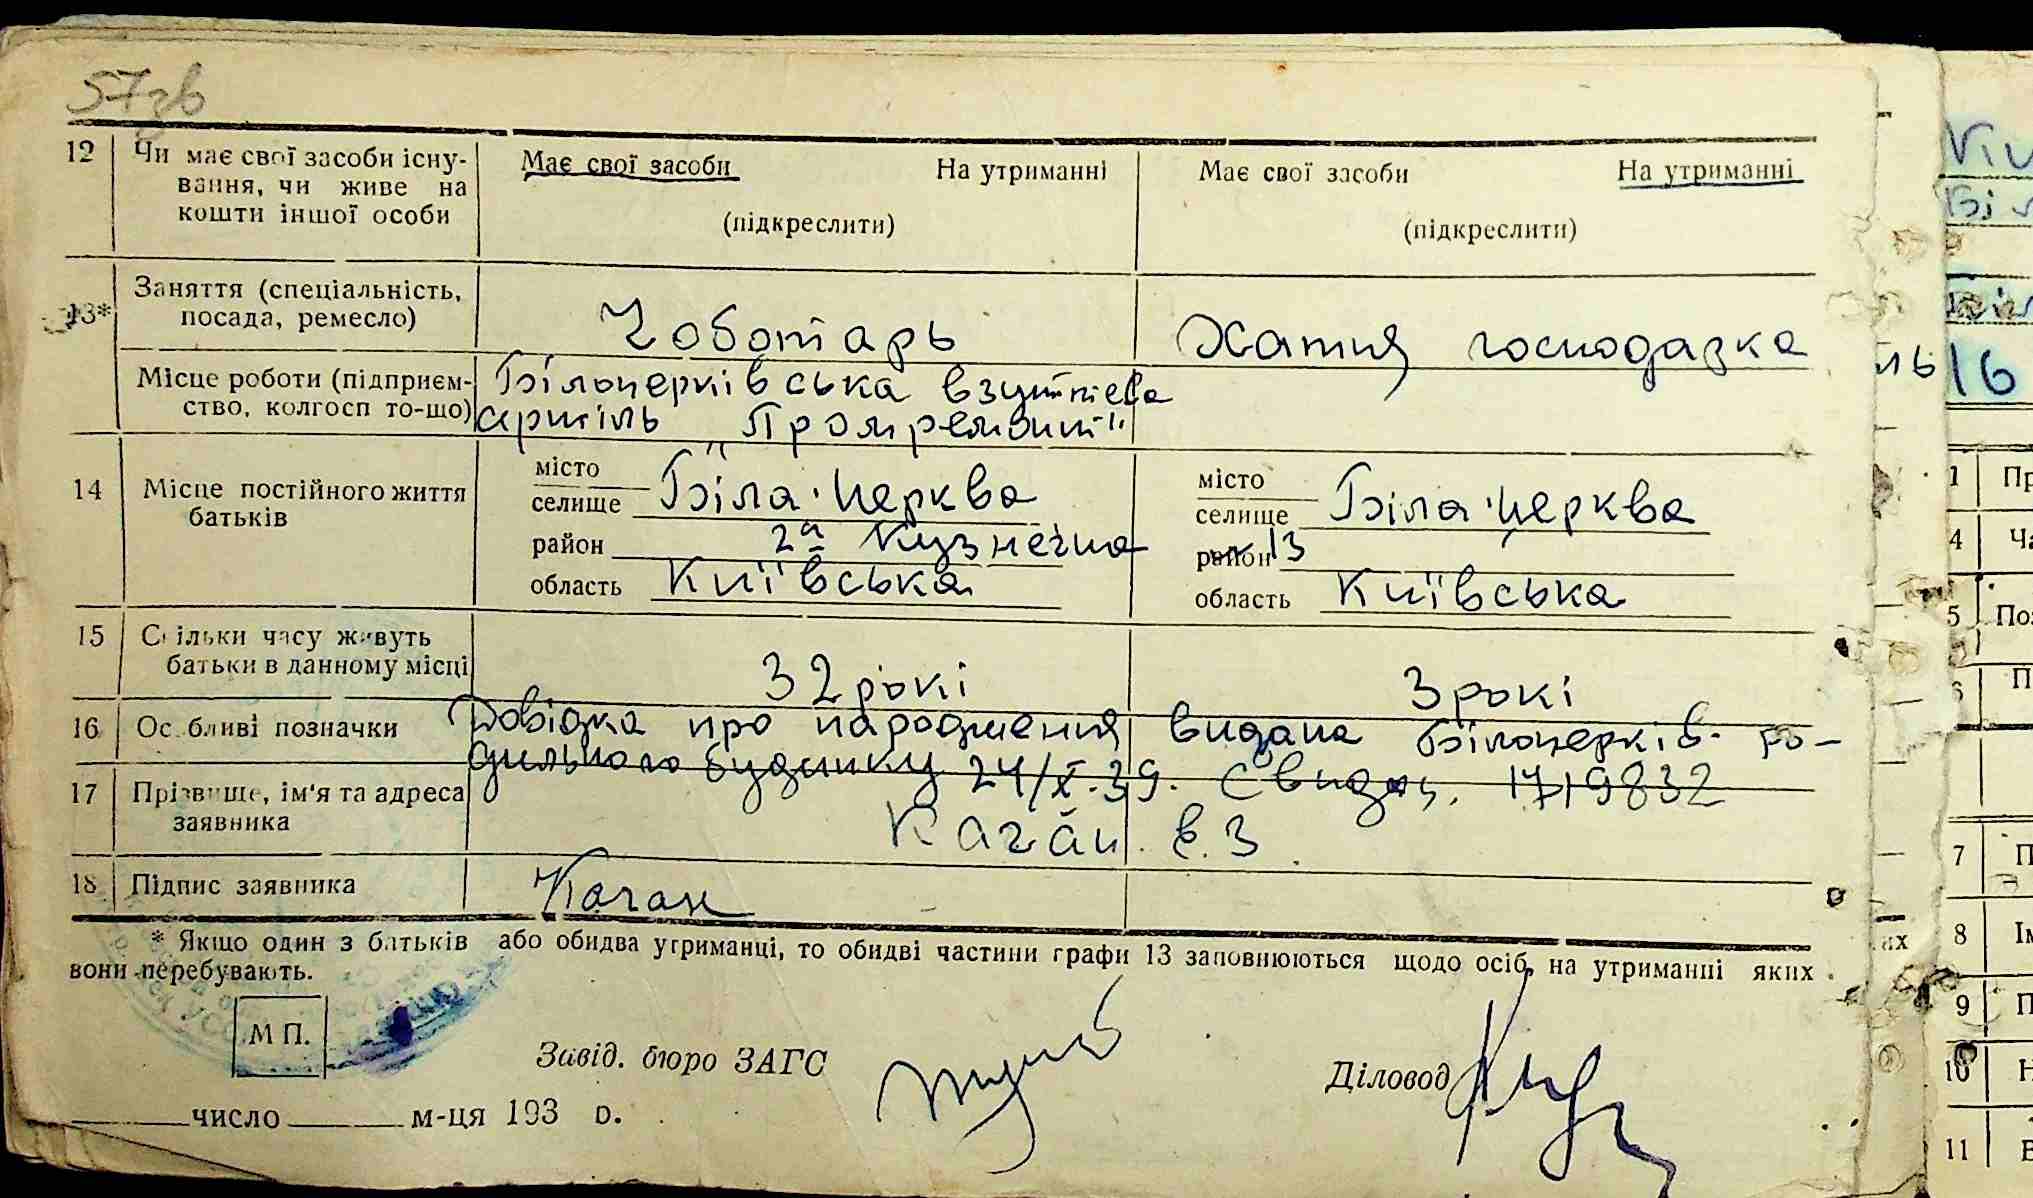 57зв
12 Чи має свої засоби існу- Має свої засоби На утриманні Має свої засоби На утриманні
вання, чи живе на
кошти іншої особи (підкреслити) (підкреслити)
13* Заняття (спеціальність,
посада, ремесло) Чоботарь Хатня господарка
Місце роботи (підприєм- Білоцерківська взуттєва
ство, колгосп то-що) артіль „Промремонт"
14 Місце постійного життя
батьків
місто
селище Біла-Церква
район 2а Кузнечна
область Київська
місто
селище Біла-Церква
район 13
область Київська
15 Скільки часу живуть
батьки в данному місці 32 рокі 3 рокі
16 Особливі позначки Довідка про народження видана Білоцерків. ро-
дильного будинку 24/X.39.
17 Прізвище, ім'я та адреса
заявника Каган Є. З.
18 Підпис заявника Каган
* Якщо один з батьків або обидва утриманці, то обидві частини графи 13 заповнюються щодо осіб, на утриманні яких
вони перебувають.
М П.
Завід. бюро ЗАГС
Діловод
число м-ця 193 р.
ль
16
1 Пр
4 Ча
5 Поз
6 П
7 П
8 Ім
9 П
10 Н
11 В
ах